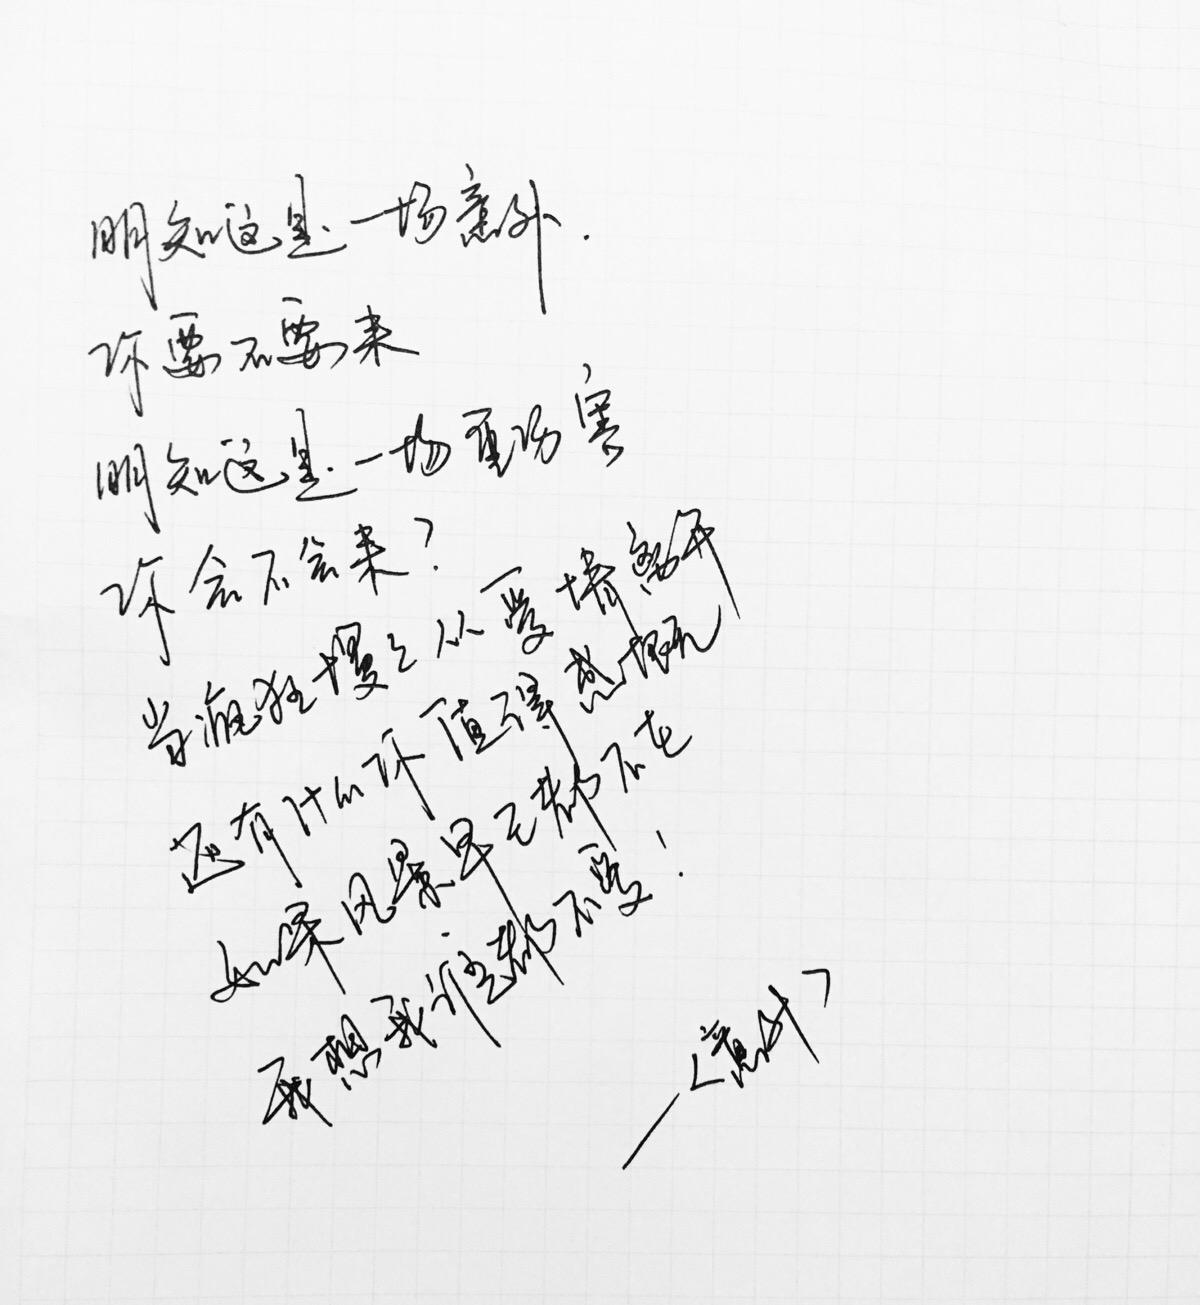 明知这是一场意外.
你要不要来
明知这是一场重伤害
你会不会来?
当疯狂慢慢从爱情离开
还有什么你值得感慨
如果风景早已都不在
我想我谁都不爱!
——<意外>